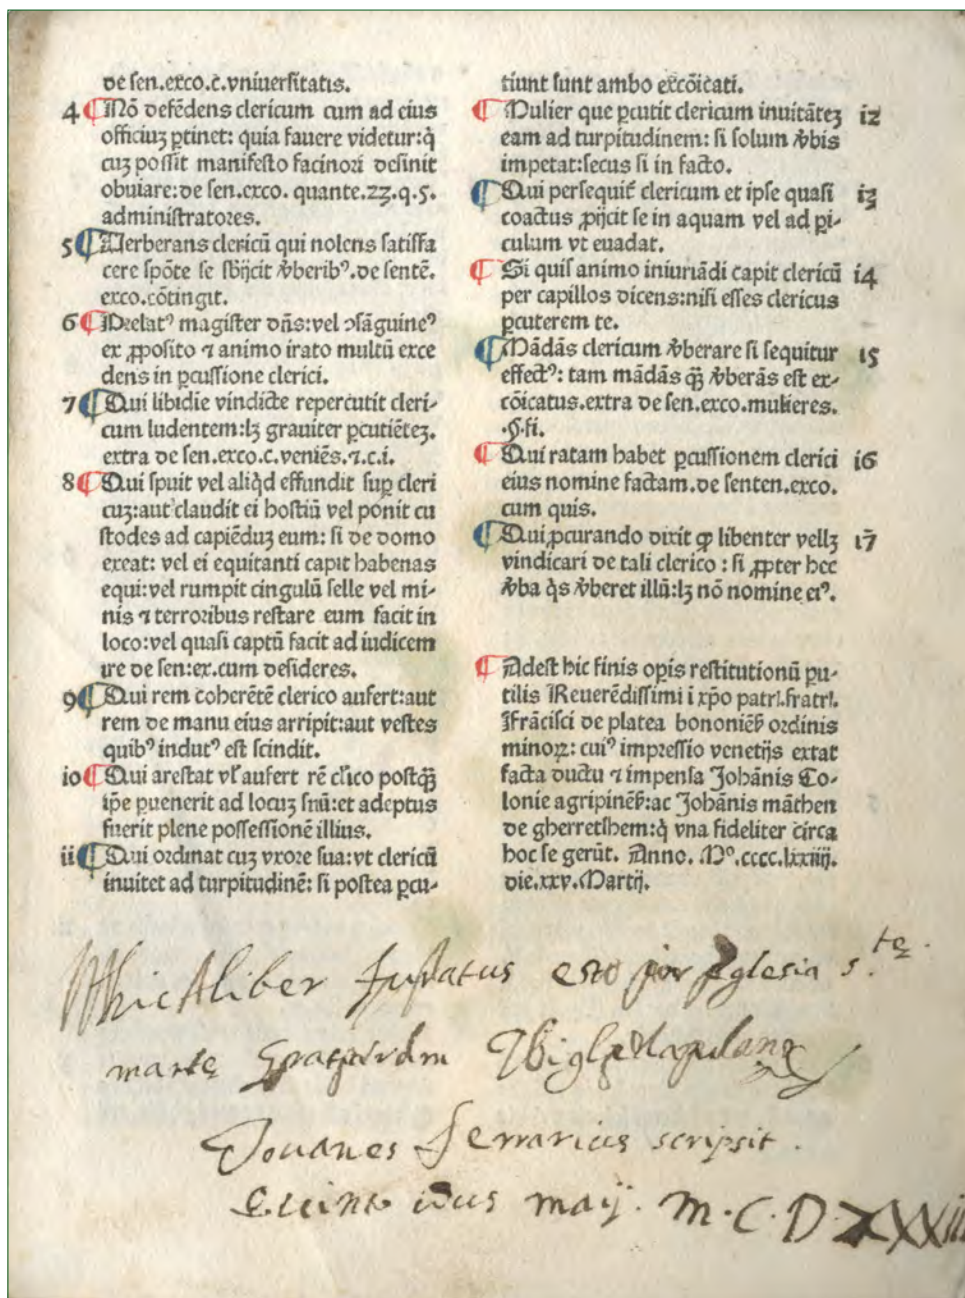 de sen.exco.c̄.vniuersitatis.
4 ¶ Nõ defẽdens clericum cum ad eius
officiuʒ ꝑtinet: quia fauere videtur:q̇
cuʒ possit manifesto facinori desinit
obuiare:de sen.exco. quante.23.q.5.
administratores.
5 ¶ Verberans clericũ qui nolens satisfa
cere spõte se sb̄ijcit v̄berib⁹.de sentẽ.
exco.cõtingit.
6 ¶ Prelat⁹ magister dñs:vel ↄsãguine⁹
ex ꝓposito ⁊ animo irato multũ exce
dens in ꝑcussione clerici.
7 ¶ Qui libidie vindicte repercutit cleri-
cum ludentem:lʒ grauiter ꝑcutiẽteʒ.
extra de sen.exco.c.veniẽs.⁊.c.i.
8 ¶ Qui spuit vel aliq̇d effundit suꝑ cleri
cuʒ:aut claudit ei hostiũ vel ponit cu
stodes ad capiẽduʒ eum: si de domo
exeat: vel ei equitanti capit habenas
equi:vel rumpit cingulũ selle vel mi-
nis ⁊ terroribus restare eum facit in
loco:vel quasi captũ facit ad iudicem
ire de sen:ex.cum desideres.
9 ¶ Qui rem coherẽtẽ clerico aufert:aut
rem de manu eius arripit:aut vestes
quib⁹ indut⁹ est scindit.
io ¶ Qui arestat vł aufert rẽ cl̃ico postq̃ʒ
ip̃e ꝑuenerit ad locuʒ snũ:et adeptus
fuerit plene possessionẽ illius.
ii ¶ Qui ordinat cuʒ vxore sua:vt clericũ
inuitet ad turpitudinẽ: si postea ꝑcu-
tiunt sunt ambo excõicati.
¶ Mulier que ꝑcutit clericum inuitãteʒ i2
eam ad turpitudinem: si solum v̄bis
impetat:secus si in facto.
¶ Qui persequit̃ clericum et ipse quasi i3
coactus ꝓijcit se in aquam vel ad ꝑi-
culum vt euadat.
¶ Si quis animo iniuriãdi capit clericũ i4
per capillos dicens:nisi esses clericus
ꝑcuterem te.
¶ Mãdãs clericum v̄berare si sequitur i5
effect⁹: tam mãdãs q̃ʒ v̄berãs est ex-
cõicatus.extra de sen.exco.mulieres.
.§.fi.
¶ Qui ratam habet ꝑcussionem clerici i6
eius nomine factam.de senten.exco.
cum quis.
¶ Qui ꝓcurando dixit ꝙ libenter vellʒ i7
vindicari de tali clerico : si ꝓpter hec
v̄ba q̇s v̄beret illũ:lʒ nõ nomine ei⁹.
¶ Adest hic finis oꝑis restitutionũ pu-
tilis Reuerẽdissimi ī xp̃o patrl.fratrl.
Frãcisci de platea bononiẽn̄ ordinis
minoꝝ: cui⁹ impressio venetijs extat
facta ductu ⁊ impensa Johãnis Co-
lonie agripinẽn̄:ac Johãnis mãthen
de gherretshem:q̇ vna fideliter circa
hoc se gerũt. Anno. Mº.cccc.lxxiiij.
die.xxv.Martij.
hic liber esto por Eglesia s.te
Jouanes Ferrarius scripsit.
Quinto idus maij. M.C.D.XXXiii